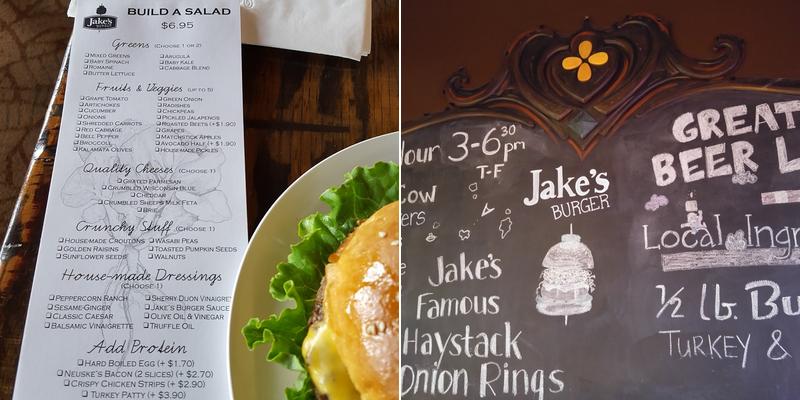 Jake's
BURGER
BUILD A SALAD
$6.95
Greens (CHOOSE 1 OR 2)
MIXED GREENS
BABY SPINACH
ROMAINE
BUTTER LETTUCE
ARUGULA
BABY KALE
CABBAGE BLEND
Fruits & Veggies (UP TO 5)
GRAPE TOMATO
ARTICHOKES
CUCUMBER
ONIONS
SHREDDED CARROTS
RED CABBAGE
BELL PEPPER
BROCCOLI
KALAMATA OLIVES
GREEN ONION
RADISHES
CHICKPEAS
PICKLED JALAPENOS
ROASTED BEETS (+$1.90)
GRAPES
MATCHSTICK APPLES
AVOCADO HALF (+$1.90)
HOUSE-MADE PICKLES
Quality Cheeses (CHOOSE 1)
GRATED PARMESAN
CRUMBLED WISCONSIN BLUE
CHEDDAR
CRUMBLED SHEEPS MILK FETA
BRIE
Crunchy Stuff (CHOOSE 1)
HOUSE-MADE CROUTONS
GOLDEN RAISINS
SUNFLOWER SEEDS
WASABI PEAS
TOASTED PUMPKIN SEEDS
WALNUTS
House-made Dressings
(CHOOSE 1)
PEPPERCORN RANCH
SESAME-GINGER
CLASSIC CAESAR
BALSAMIC VINAIGRETTE
SHERRY DIJON VINAIGRE
JAKE'S BURGER SAUCE
OLIVE OIL & VINEGAR
TRUFFLE OIL
Add Protein
HARD BOILED EGG (+ $1.70)
NEUSKE'S BACON (2 SLICES) (+ $2.70)
CRISPY CHICKEN STRIPS (+ $2.90)
TURKEY PATTY (+ $3.90)
our 3-6 30 pm
T-F
ow
ers
Jake's
Famous
Haystack
Onion Rings
Jake's
BURGER
GREAT
BEER L
Local Ingr
½ lb. Bu
TURKEY &